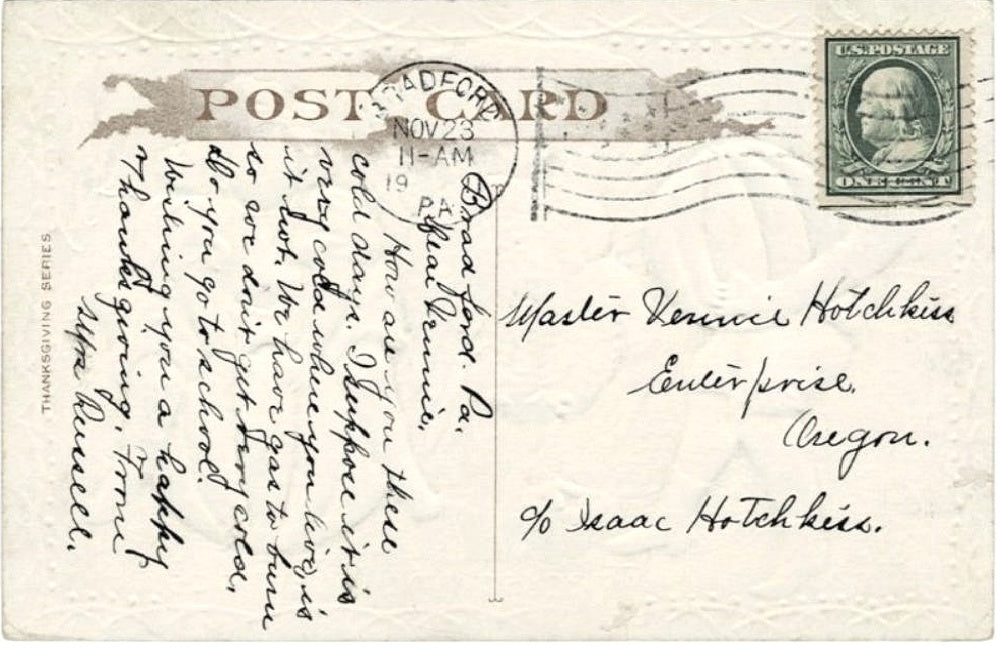 POST CARD
BRADFORD
NOV 23
11-AM
19
PA
U.S. POSTAGE
ONE CENT
THANKSGIVING SERIES
Bradford. Pa.
Dear Vernnie,
How are you these
cold days. I suppose it is
very cold where you live, is
it not. We have gas to burn
so we don't get very cold.
Do you go to school?
Wishing you a happy
Thanksgiving. From
Mrs Russell.
Master Vernnie Hotchkiss
Enterprise.
Oregon.
c/o Isaac Hotchkiss.